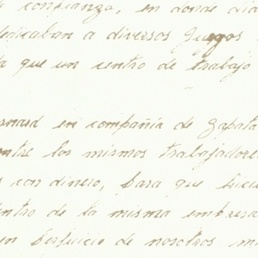 confianza, en donde dia
edicaban a diversos juegos
a que un centro de trabajo
en compañia de Zapata
entre los mismos trabajadores
con dinero, para que
entro de la misma empresa
en perjuicio de nosotros